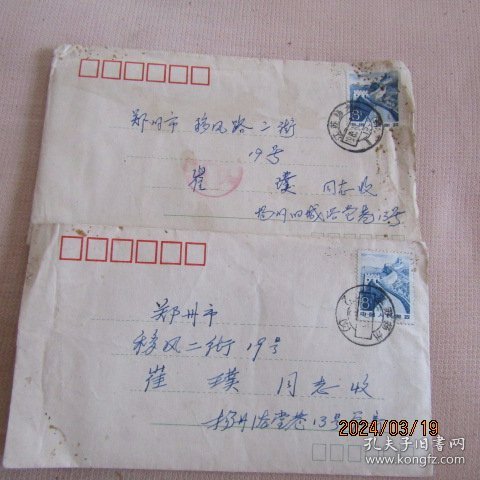 郑州市 移风路二街
19号
崔 璞 同志收
8
郑州市
移风二街19号
崔 璞 同志收
扬州 堂巷13号
8
2024/03/19
孔夫子旧书网
www.kongfz.com